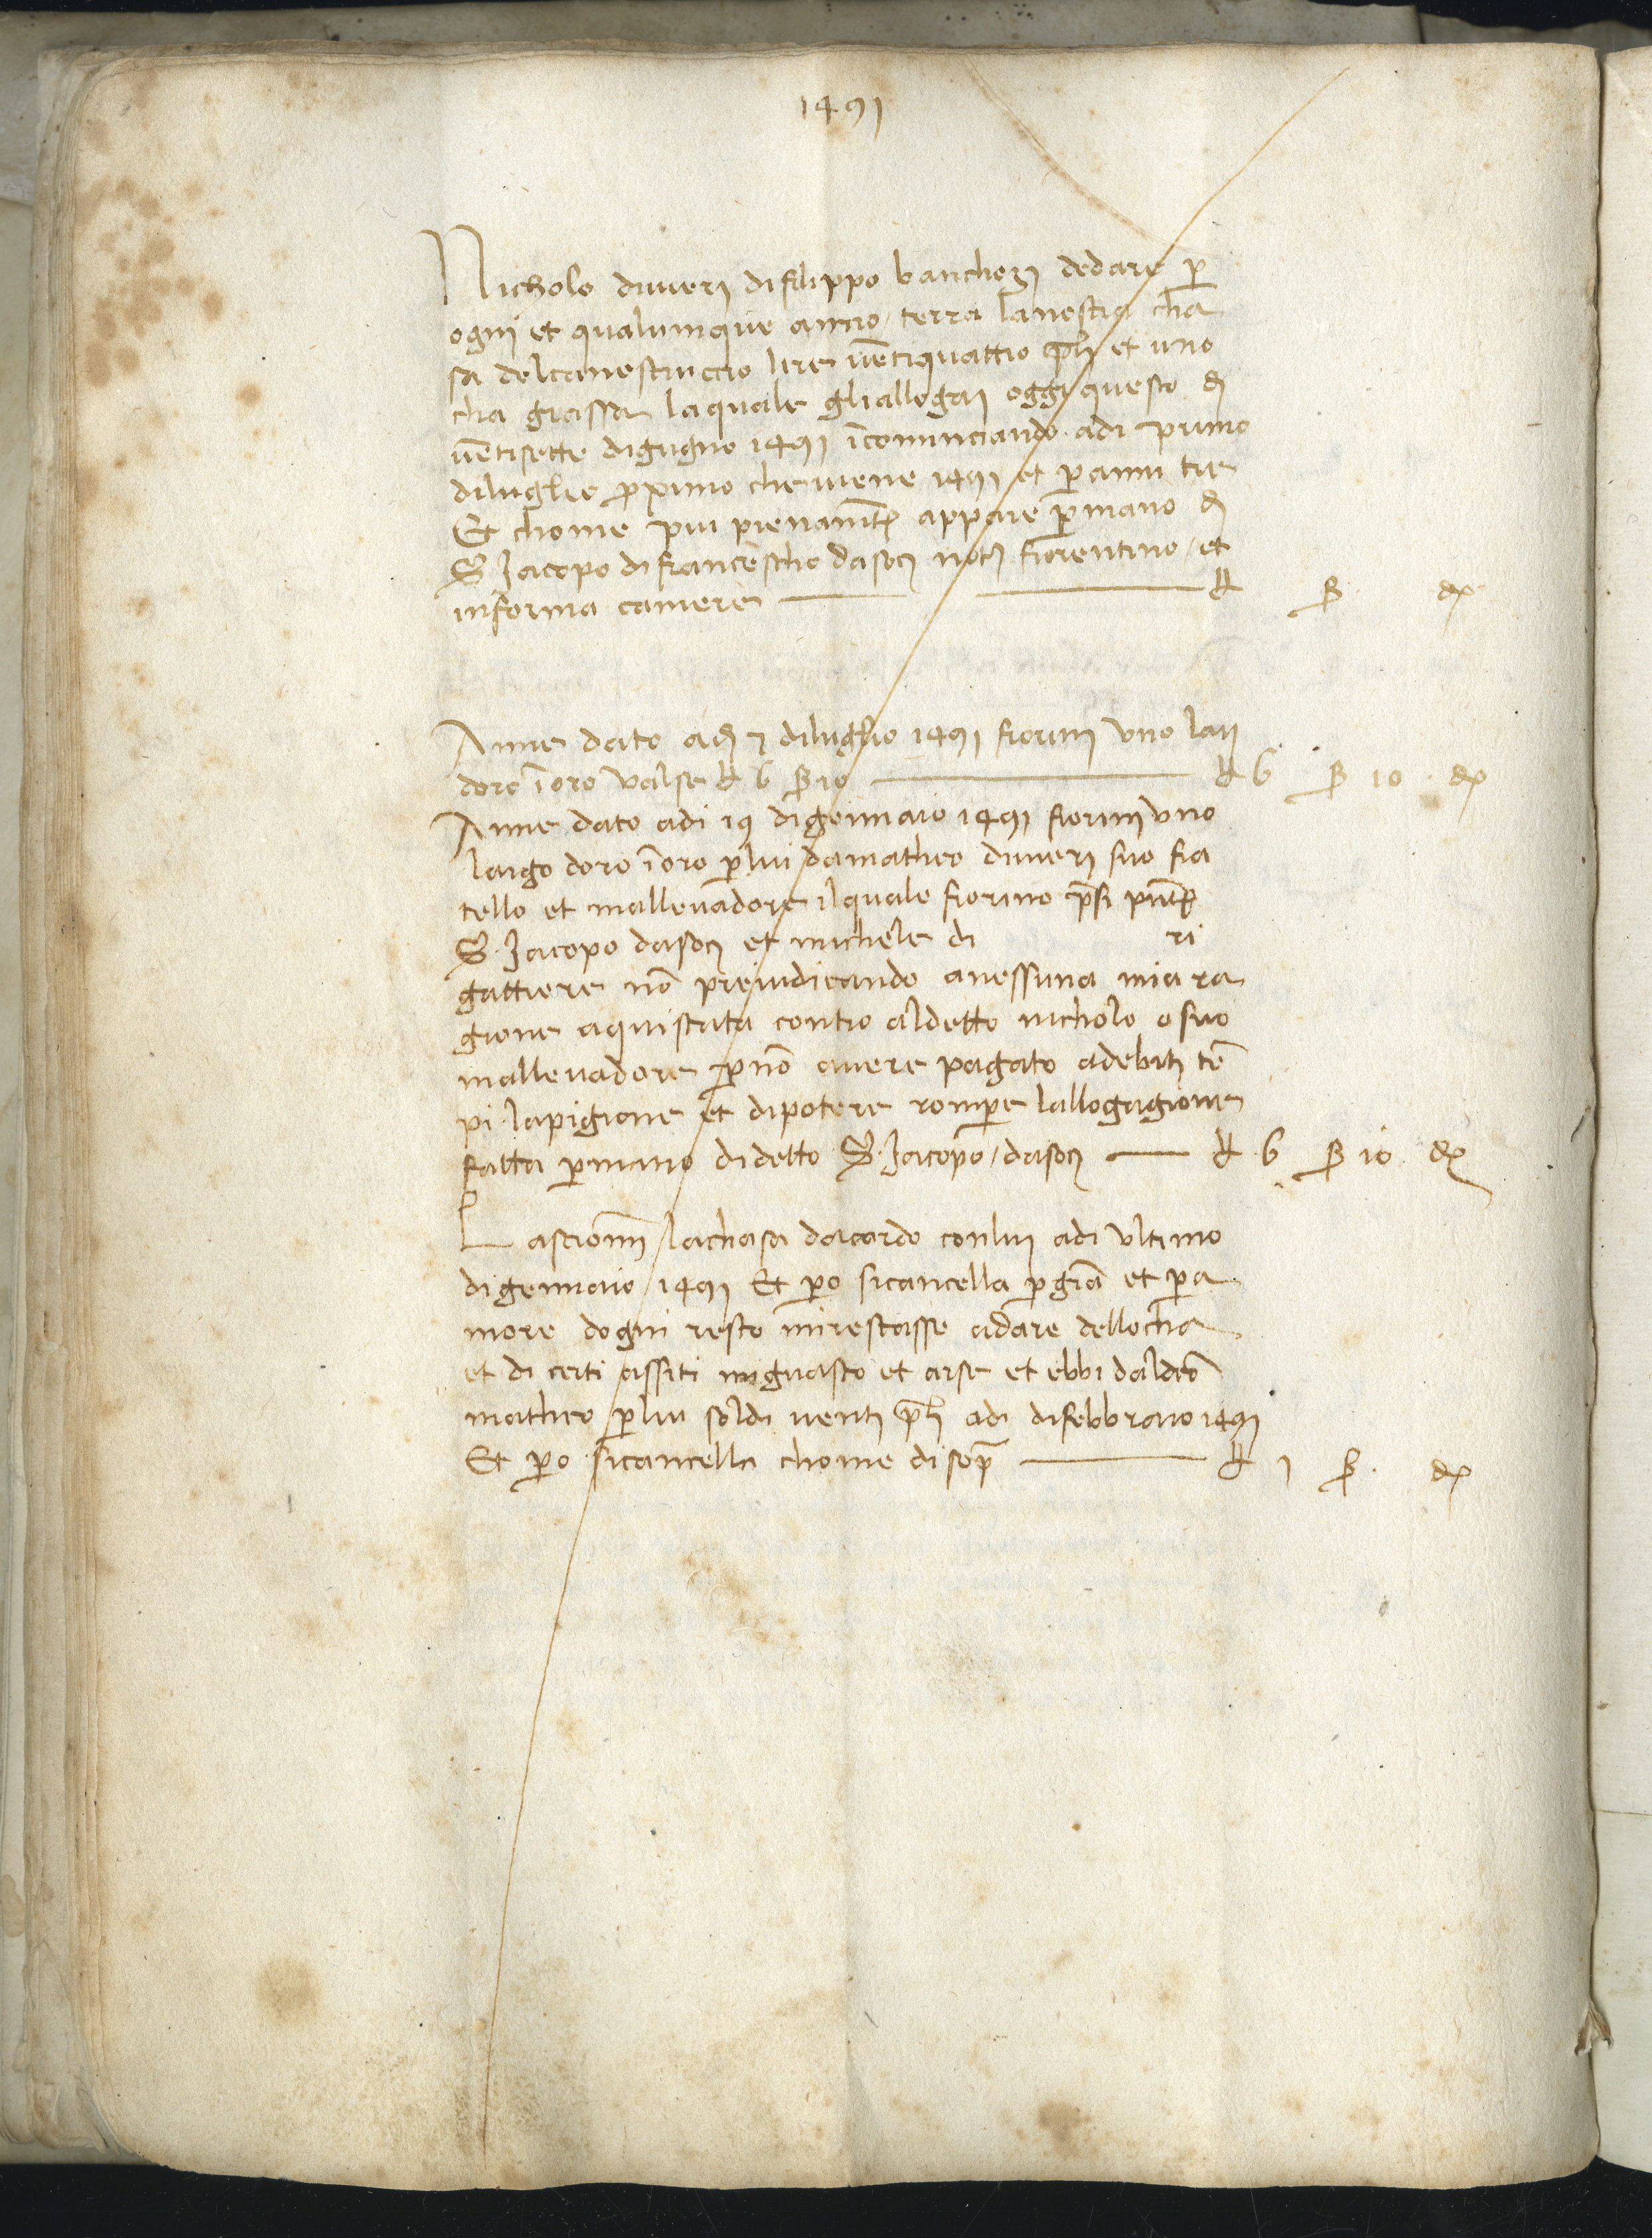 1491
Nicholo diveri di filippo bancherj dedare p
ogni et qualumque anno / terra lanostra cha
sa delcanestruccio lire ventiquattro et uno
cha grassa laquale gliallogai oggi questo dj
ventisette digugno 1491 īcominciando adi primo
diluglio proximo cheviene 1491 et p anni tre
Et chome piu pienamēt appare p mano dj
S Jacopo di francescho dasoci notº fiorentino / et
informa camere L ß d
Anne dato adj 7 diluglio 1491 fiorinj uno larj
doro ī oro valse L 6 ß 10 L 6 ß 10 d
Anne dato adi 19 digennaio 1491 fiorinj uno
largo doro ī oro p lui damatheo diveri suo fra
tello et mallevadore ilquale fiorino p̄si pñte
S. Jacopo dasoci et michele di ri
gattiere nō preiudicando anessuna mia ra
gione aquistata contro aldetto nicholo o suo
mallevadore p nō avere pagato adebiti tē
pi lapigione et dipotere rompe lallogagione
fatta p mano didetto S. Jacopo / dasoci L 6 ß 10 d
Lascionnj lachasa dacordo conlui adi ultimo
digennaio 1491 Et po sicancella p grā et p a
more dogni resto mirestasse adare dellocha
et di certi assiti mj guasto et arse et ebbi daldcō
matheo p lui soldi venti adi difebbraio 1491
Et po sicancella chome disop L 1 ß d